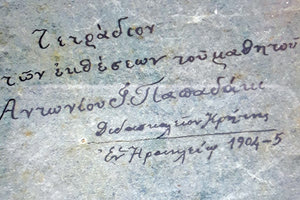 Τετράδιον
τῶν ἐκθέσεων τοῦ μαθητοῦ
Ἀντωνίου Ἰ. Παπαδάκι
Διδασκαλεῖον Κρήτης
Ἐν Ἡρακλείῳ 1904-5